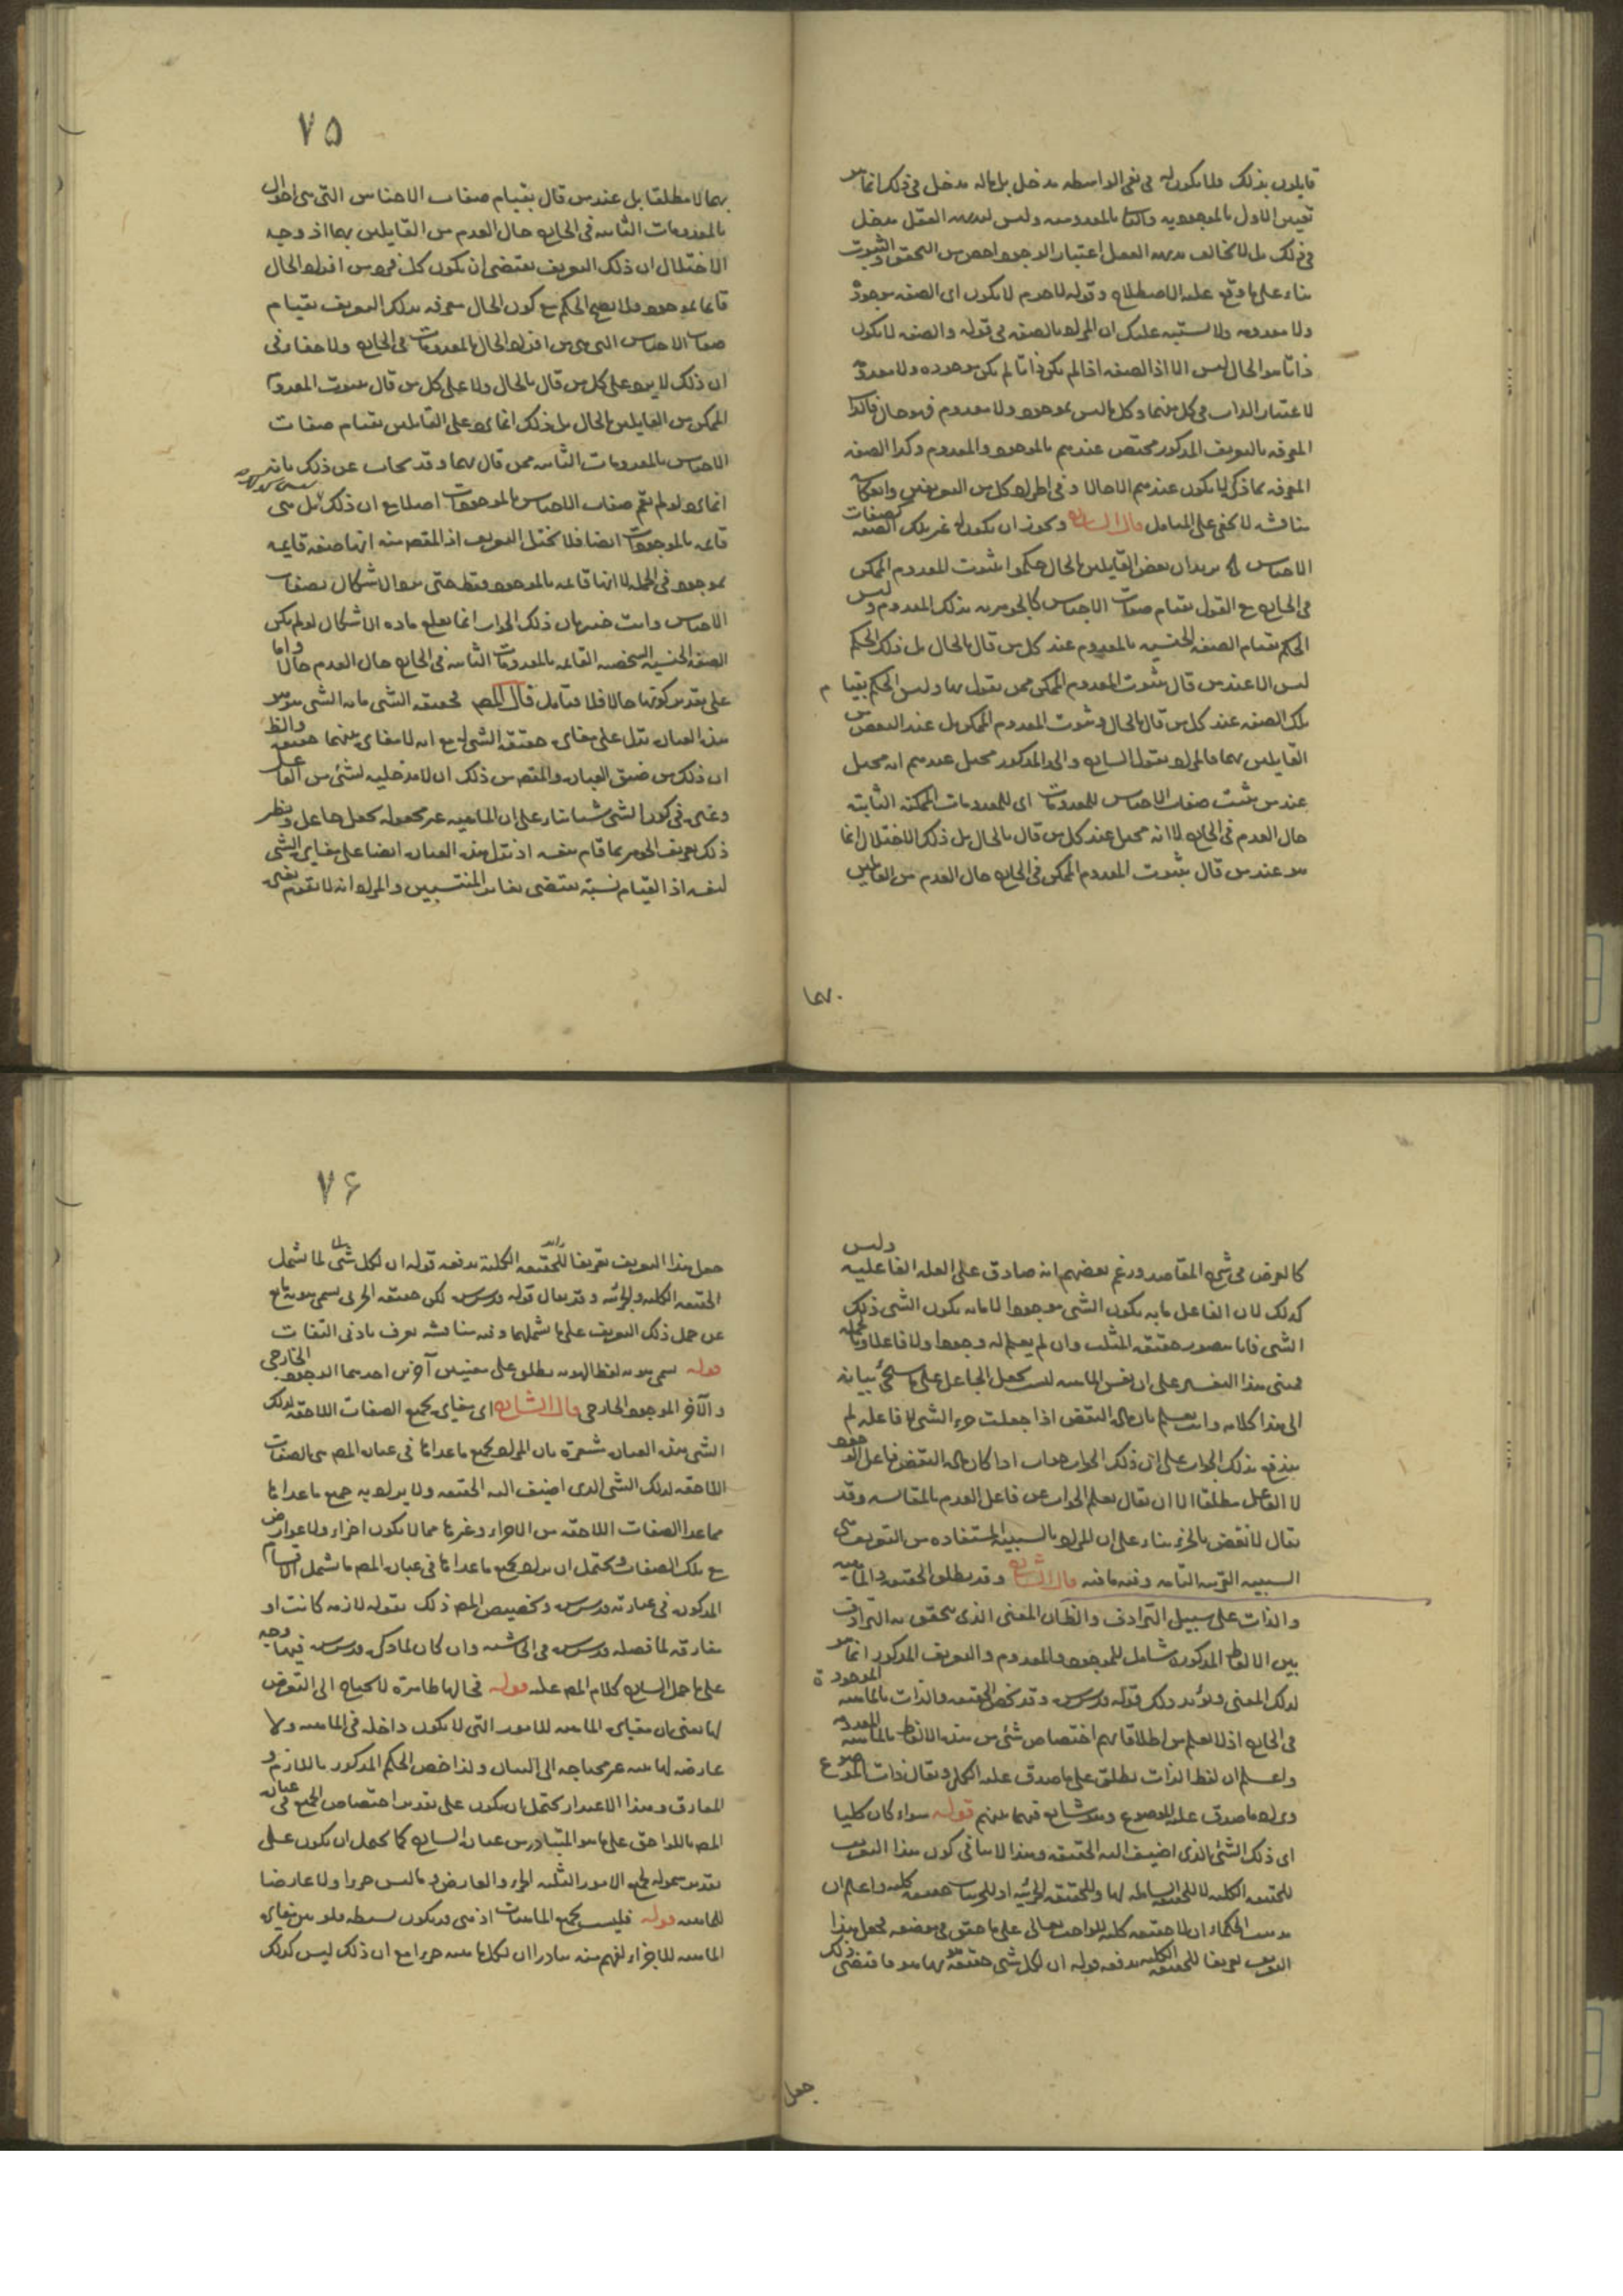 قايلون بذلك فلما يكون له فى نفى الواسطه مدخل بل ماله مدخل فى ذلك انما هو
تعيين الاول بالموجوديه والثانى بالمعدوميه وليس لبديهه العقل مدخل
فى ذلك بل لا يخالف بديهه العقل اعتبار الوجود اخص من التحقق والثبوت
بناء على ما وقع عليه الاصطلاح وقوله لا جرم لا يكون اى الصفه موجودة
ولا معدومه ولا يشتبه عليك ان المراد بالصفه فى قوله والصفه لا يكون
ذاتا هو الحال ليس الا اذ الصفه اذا لم يكن ذاتا لم يكن موجوده ولا معدومة
لاعتبار الذات فى كل منهما وكل ما ليس بموجود ولا معدوم فهو حال فالذات
المعرفه بالتعريف المذكور مختص عندهم بالموجود والمعدوم وكذا الصفه
المعرفه بما ذكر لا يكون عندهم الا حالا وفى اطراد كل من التعريفين وانعكاسه
مناقشه لا يخفى على المتامل قال الشارح ويجوز ان يكون له غير تلك الصفه كصفات
الاجناس يريد ان بعض القايلين بالحال حكموا بثبوت المعدوم الممكن
فى الخارج مع القول بقيام صفات الاجناس كالجوهريه بذلك المعدوم وليس
الحكم بقيام الصفه الجنسيه بالمعدوم عند كل من قال بالحال بل ذلك الحكم
ليس الا عند من قال بثبوت المعدوم الممكن ممن يقول بها وليس الحكم بقيام
تلك الصفه عند كل من قال بالحال وثبوت المعدوم الممكن بل عند البعض من
القايلين بهما فالمراد بقول الشارح والحد المذكور مختل عندهم انه مختل
عند من يثبت صفات الاجناس للمعدومات اى للمعدومات الممكنه الثابته
حال العدم فى الخارج لا انه مختل عند كل من قال بالحال بل ذلك الاختلال انما
هو عند من قال بثبوت المعدوم الممكن فى الخارج حال العدم من القايلين
بهما
۷۵
بهما لا مطلقا بل عند من قال بقيام صفات الاجناس التى هى احوال
بالمعدومات الثابته فى الخارج حال العدم من القايلين بهما اذ وجه
الاختلال ان ذلك التعريف يقتضى ان يكون كل فرد من افراد الحال
قائما بموجود ولا يصح الحكم مع كون الحال معرفه بذلك التعريف بقيام
صفات الاجناس التى هى من افراد الحال بالمعدومات فى الخارج ولا خفاء فى
ان ذلك لا يرد على كل من قال بالحال ولا على كل من قال بثبوت المعدوم
الممكن من القايلين بالحال بل ذلك انما يرد على القايلين بقيام صفات
الاجناس بالمعدومات الثابته ممن قال بهما وقد يجاب عن ذلك بانه
انما يرد لو لم يقم صفات الاجناس بالموجودات اصلا مع ان ذلك ليس كذلك بل هى
قائمه بالموجودات ايضا فلا يختل التعريف اذ المقصود منه انها صفه قائمه
بموجود فى الجمله لا انها قائمه بالموجود فقط حتى يتوجه الاشكال بصفات
الاجناس وانت خبير بان ذلك الجواب انما يقلع ماده الاشكال لو لم يكن
الصفه الجنسيه الشخصيه القائمه بالمعدومات الثابته فى الخارج حال العدم حالا واما
على تقدير كونها حالا فلا فتامل قال المص حقيقه الشى ما به الشى هو هو
هذه العباره تدل على مغايره حقيقه الشى له مع انه لا مغايره بينهما حقيقه والظ
ان ذلك من ضيق العباره والمقصود من ذلك ان لا مدخليه لشئ من الفاعل
وغيره فى كون الشى شيئا بناء على ان الماهيه غير مجعوله بجعل جاعل ونظير
ذلك تعريف الجوهر بما قام بنفسه اذ تدل هذه العباره ايضا على مغايره الشى
لنفسه اذ القيام نسبة يقتضى تغاير المنتسبين والمراد انه لا يقوم بغيره
كالعرض فى شرح المقاصد وزعم بعضهم انه صادق على العله الفاعليه وليس
كذلك لان الفاعل ما به يكون الشى موجودا لا ما به يكون الشى ذلك
الشى فانا نتصور حقيقه المثلث وان لم يعلم له وجود ولا فاعل وبالجمله
فمبنى هذا التفسير على ان نفس الماهيه ليست بجعل الجاعل على ما سيجئ بيانه
الى هنا كلامه وانت تعلم بان ماده النقض اذا جعلت جزء الشى لا فاعله لم
يندفع بذلك الجواب على ان ذلك الجواب جواب اذا كان ماده النقض فاعل الوجود
لا الفاعل مطلقا الا ان يقال يعلم الجواب عن فاعل العدم بالمقايسه وقد
يقال لا نقض بالجزء بناء على ان المراد بالسببية المستفاده من التعريف هى
السببيه القريبه التامه وفيه ما فيه قال الشارح وقد يطلق الحقيقه والماهيه
والذات على سبيل الترادف والظ ان المعنى الذى يتحقق به الترادف
بين الالفاظ المذكوره شامل للموجود والمعدوم والتعريف المذكور انما هو
لذلك المعنى ويؤيد ذلك قوله قدس سره وقد يخص الحقيقه والذات بالماهيه الموجودة
فى الخارج اذ لا يعلم من اطلاقاتهم اختصاص شئ من هذه الالفاظ بالماهيه المعدومه
واعلم ان لفظ الذات يطلق على ما صدق عليه الكلى ويقال ذات الموضوع
ويراد ما صدق عليه الموضوع وهو شايع فيما بينهم قوله سواء كان كليا
اى ذلك الشئ الذى اضيف اليه الحقيقه وهذا لا ينافى كون هذا التعريف
للحقيقه الكليه لا للحقيقه الشامله لها وللحقيقه الجزئيه او للجزئيات حقيقه كليه واعلم ان
مذهب الحكماء ان لا حقيقه كليه للواجب تعالى على ما حقق فى موضعه فجعل هذا
التعريف تعريفا للحقيقه الكليه يدفعه قوله ان لكل شى حقيقه هو بها هو فاقتضى ذلك
جعل
۷۶
جعل هذا التعريف تعريفا للحقيقه الكليه يدفعه قوله ان لكل شى لما شمل
الحقيقه الكليه والجزئيه وقد يقال قوله قدس سره لكن حقيقه الجزئى يسمى هويه مانع
عن حمل ذلك التعريف على ما يشملهما وفيه مناقشه تعرف بادنى التفات
قوله يسمى هويه لفظ الهويه يطلق على معنيين آخرين احدهما الوجود الخارجى
والآخر الموجود الخارجى قال الشارح اى مغايره لجميع الصفات اللاحقه لذلك
الشى هذه العباره مشعرة بان المراد بجميع ما عداها فى عباره المص هى الصفات
اللاحقه لذلك الشى الذى اضيف اليه الحقيقه ولا يراد به جميع ما عداها
مما عدا الصفات اللاحقه من الاجزاء وغيرها مما لا يكون اجزاء ولا عوارض
مع تلك الصفات ويحتمل ان يراد بجميع ما عداها فى عباره المص ما شمل الاقسام
المذكوره فى عبارته قدس سره وتخصيص المص ذلك بقوله لازمه كانت او
مفارقه لما فصله قدس سره فى الحاشيه وان كان لما ذكره قدس سره فيها وجه
على ما حمل الشارح كلام المص عليه قوله فحالها ظاهرة لا يحتاج الى التعرض
لها يعنى بان مغايره الماهيه للامور التى لا يكون داخله فى الماهيه ولا
عارضه لها بينه غير محتاجه الى البيان ولذا خص الحكم المذكور باللازم و
المفارق وهذا الاعتذار يحتمل ان يكون على تقدير اختصاص الجميع فى عباره
المص باللواحق على ما هو المتبادر من عباره الشارح كما يحتمل ان يكون على
تقدير شموله لجميع الامور الثلثه الجزء والعارض وما ليس جزءا ولا عارضا
للماهيه قوله فليست لجميع الماهيات اذ هى قد يكون بسيطه فلو بين مغايره
الماهيه للاجزاء لفهم منه تبادرا ان لكل ماهيه جزءا مع ان ذلك ليس كذلك